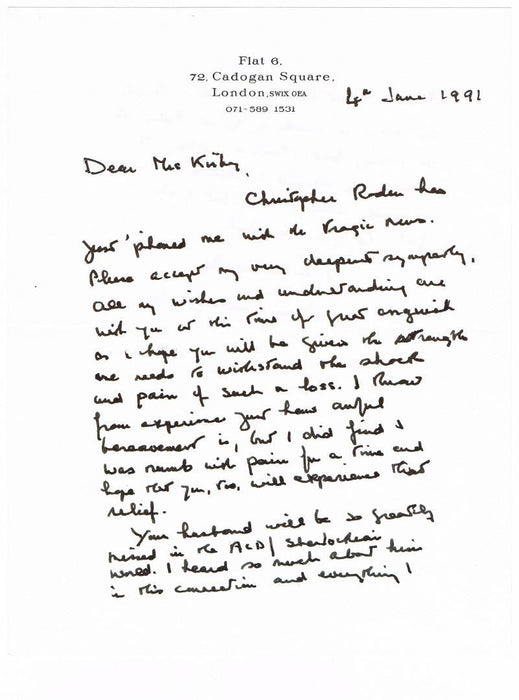 Flat 6.
72, Cadogan Square,
London, SW1X 0EA
071-589 1531
4th June 1991
Dear Mrs Kirby,
Christopher Roden has
just 'phoned me with the tragic news.
Please accept my very deepest sympathy,
all my wishes and understanding are
with you at this time of great anguish
as I hope you will be given the strength
one needs to withstand the shock
and pain of such a loss. I know
from experience just how awful
bereavement is, but I did find I
was numb with pain for a time and
hope that you, too, will experience that
relief.
Your husband will be so greatly
missed in the ACD/Sherlockian
world. I heard so much about him
in this connection and everything I